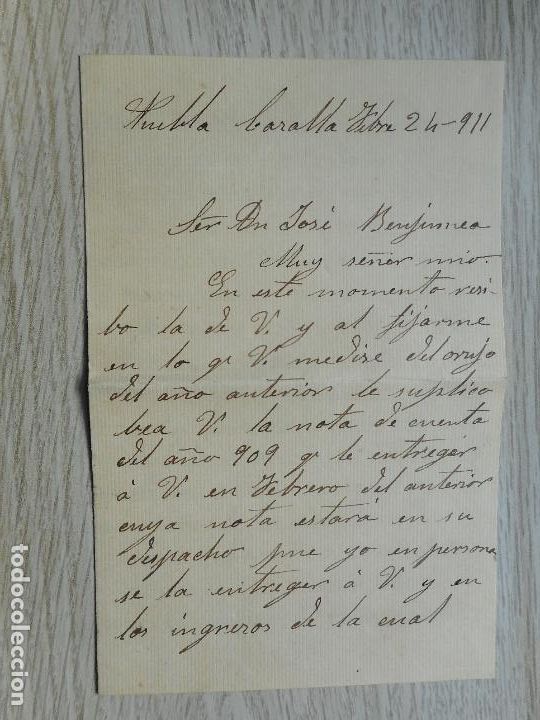 Puebla Cazalla Febre 24-911
Señr Dn José Benjumea
Muy señor mio.
En este momento resi-
bo la de V. y al fijarme
en lo qe V. me dise del orujo
del año anterior le suplico
bea V. la nota de cuenta
del año 909 qe le entreger
á V. en Febrero del anterior
cuya nota estará en su
despacho pue yo en persona
se la entreger á V. y en
los ingreros de la cual
todocoleccion.net